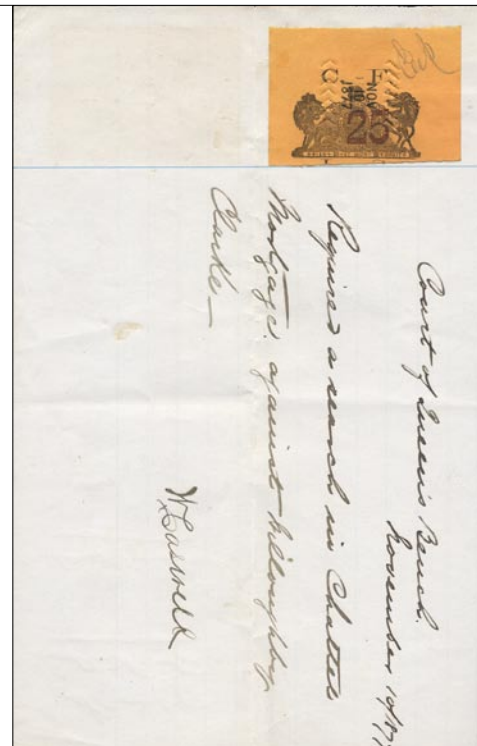 C F
NOV
1877
25
Court of Queen's Bench.
November
Required a search in Chattel
Mortgages against Willoughby
Clarke —